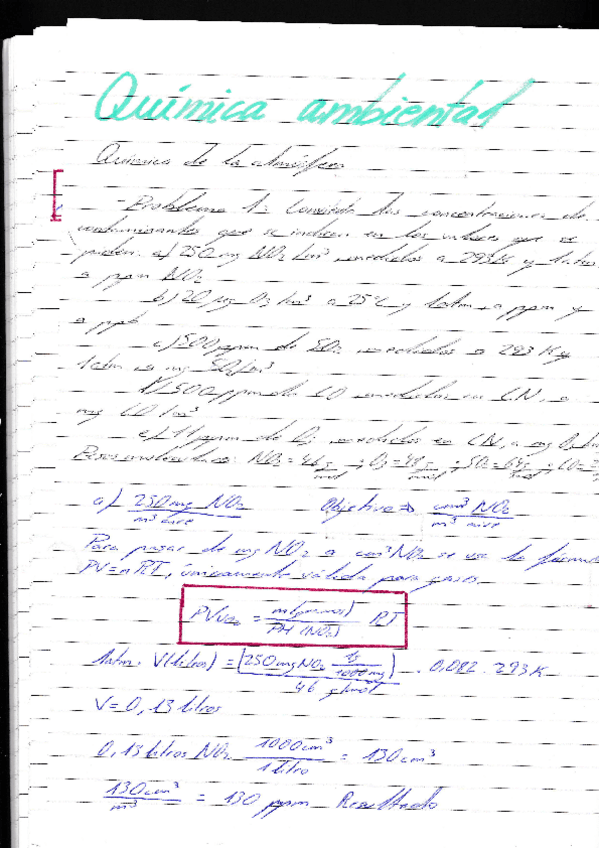 Química ambiental
Química de la atmósfera
Problema 1: Convierta las concentraciones de
contaminantes que se indican en los valores que se
piden. a) 250 mg NO₂/m³ medidos a 293 K y 1 atm
a ppm NO₂
b) 20 μg O₃/m³ a 25°C y 1 atm a ppm y
a ppb
c) 500 ppm de SO₂ medidos a 293 K y
1 atm a mg SO₂/m³
d) 500 ppm de CO medidos en CN, a
mg CO/m³
e) ppm de O₃ medidos en CN, a mg O₃
Pesos moleculares: NO₂ = 46 g/mol ; O₃ = 48 g/mol ; SO₂ = 64 g/mol ; CO =
a) 250 mg NO₂ / m³ aire Objetivo ⇒ cm³ NO₂ / m³ aire
Para pasar de mg NO₂ a cm³ NO₂ se usa la
PV = nRT, únicamente válida para gases.
PV NO₂ = m / PM (NO₂) RT
1 atm · V(litros) = (250 mg NO₂ · 1g / 1000 mg) / 46 g/mol · 0,082 · 293 K
V = 0,13 litros
0,13 litros NO₂ 1000 cm³ / 1 litro = 130 cm³
130 cm³ / m³ = 130 ppm Resultado